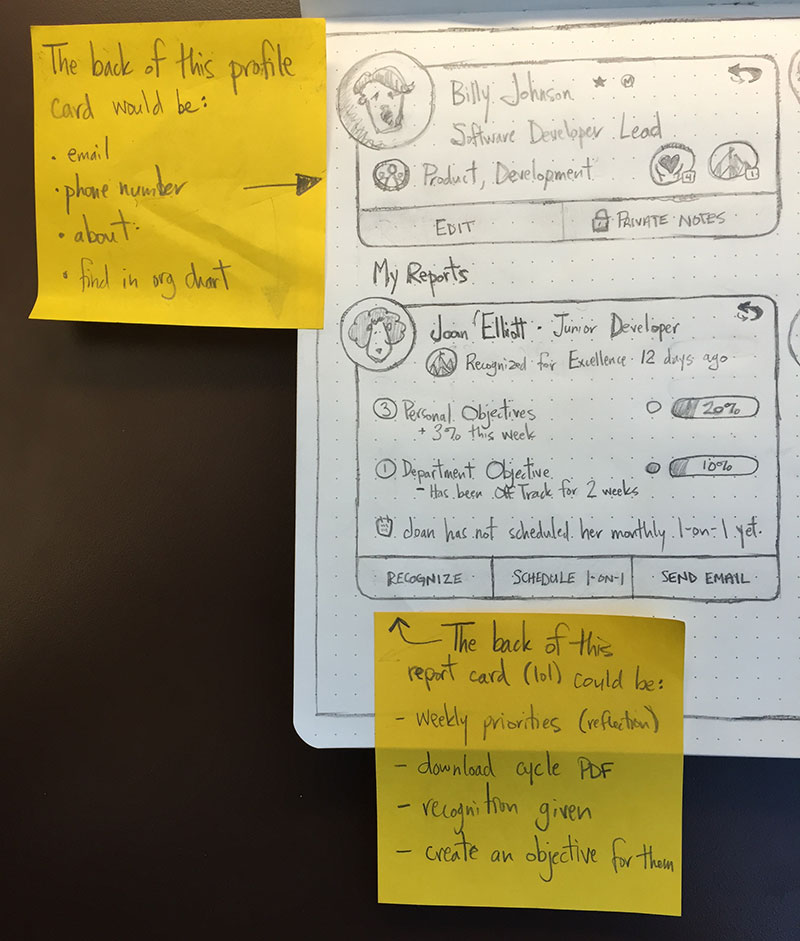 The back of this profile
card would be:
• email
• phone number
• about
• find in org chart
Billy Johnson ★ M
Software Developer Lead
Product, Development
4
1
EDIT
PRIVATE NOTES
My Reports
Joan Elliott - Junior Developer
Recognized for Excellence 12 days ago
3 Personal Objectives
+ 3% this week
20%
1 Department Objective
- Has been Off Track for 2 weeks
10%
Joan has not scheduled her monthly 1-on-1 yet.
RECOGNIZE
SCHEDULE 1-ON-1
SEND EMAIL
The back of this
report card (lol) could be:
- weekly priorities (reflection)
- download cycle PDF
- recognition given
- create an objective for them